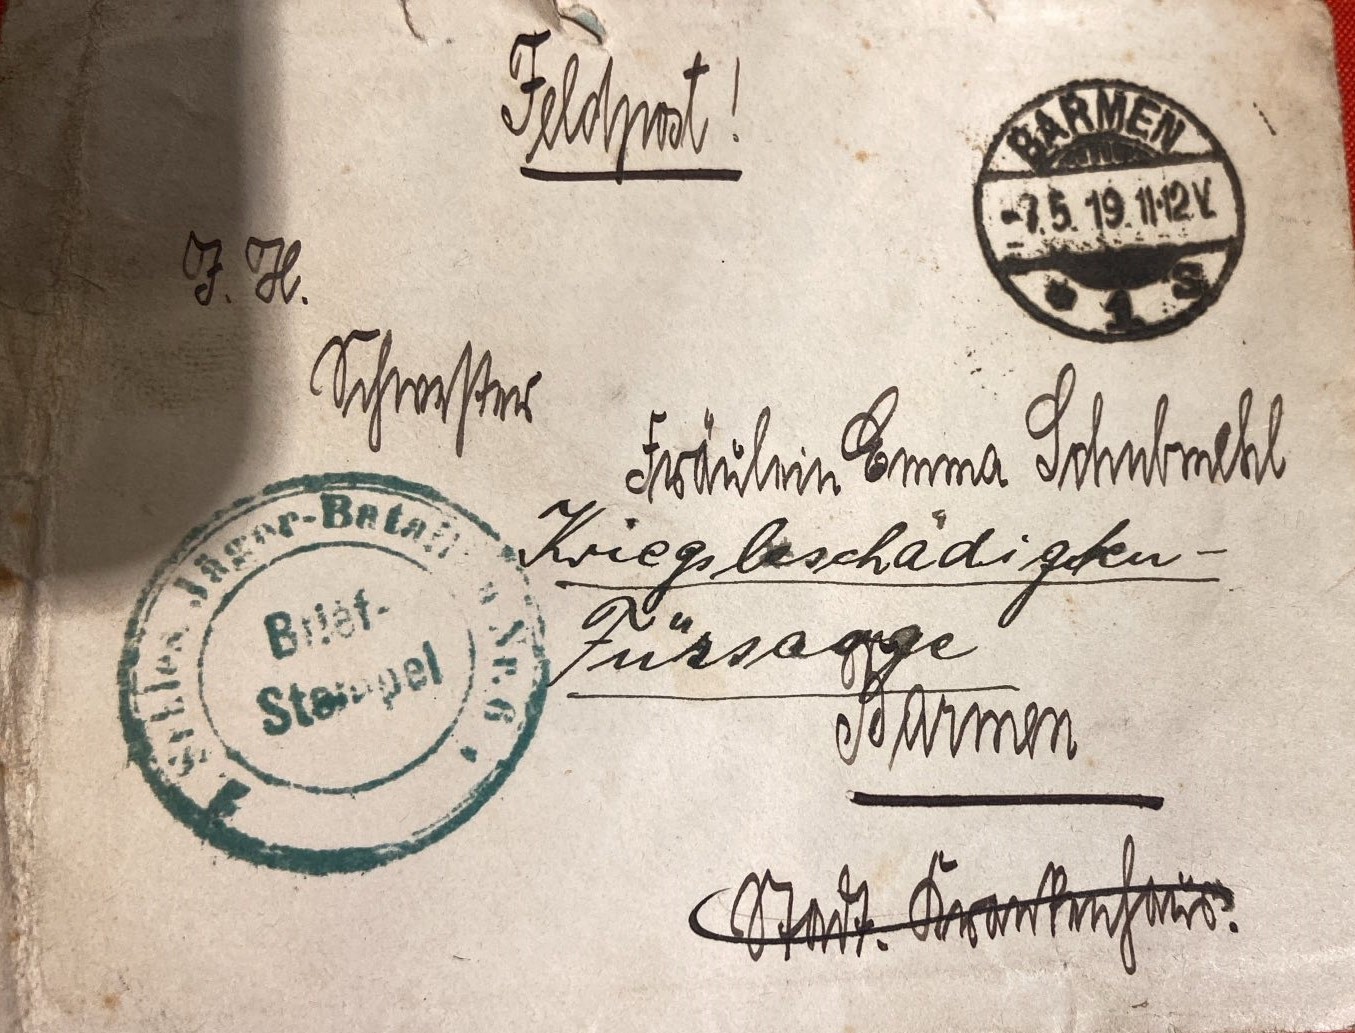 Feldpost!
BARMEN
-7.5.19.11-12V.
* 1 S
J. H.
Schwester
Fräulein Emma Schubmehl
Kriegsbeschädigten-
Fürsorge
Barmen
Städt. Krankenhaus.
Schles. Jäger-Bataillon Nr. 6
Brief-
Stempel